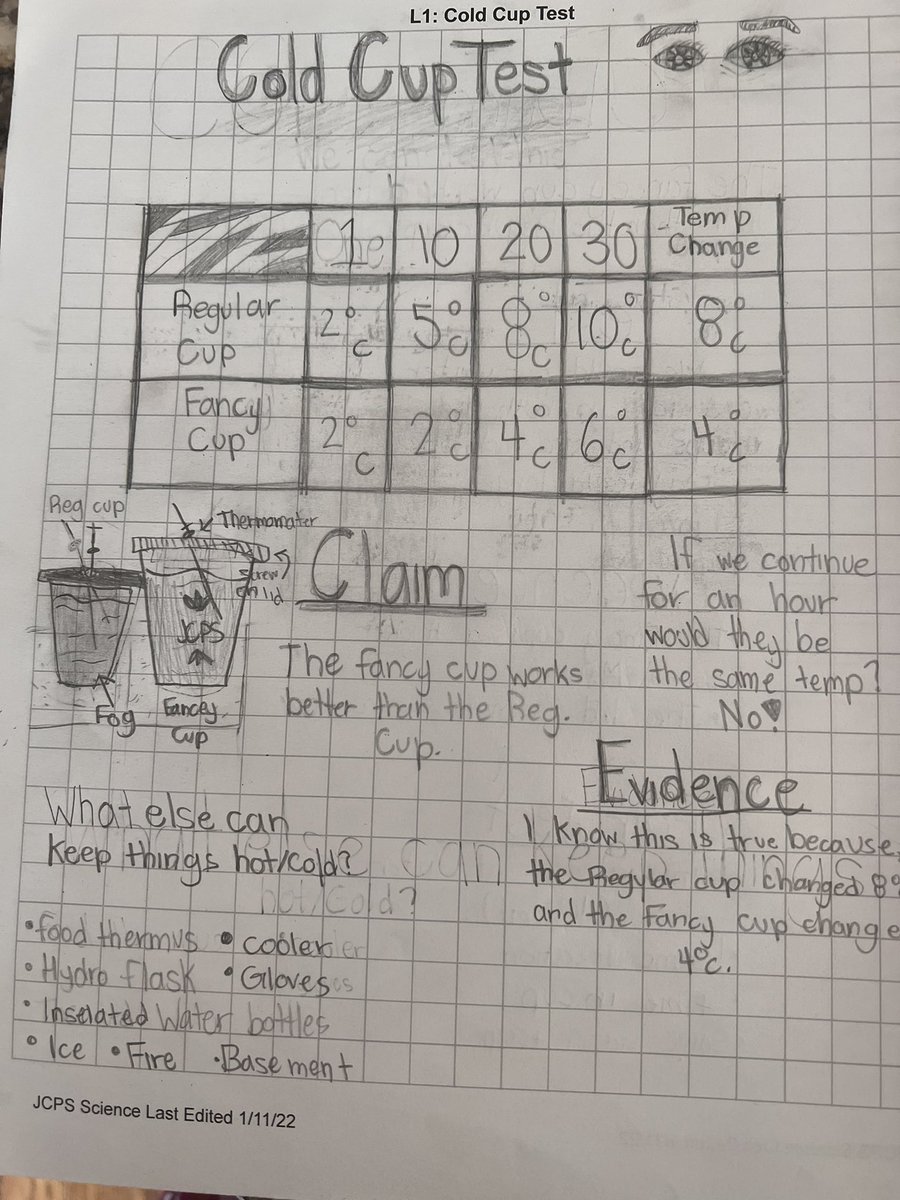 L1: Cold Cup Test
Cold Cup Test
1 10 20 30 Temp
Change
Regular
Cup 2°C 5°C 8°C 10°C 8°C
Fancy
Cup 2°C 2°C 4°C 6°C 4°C
Reg cup
Thermomater
screw
on lid
JCPS
Fog
Fancey
Cup
Claim
The fancy cup works
better than the Reg.
Cup.
If we continue
for an hour
would they be
the same temp?
No!
Evidence
I know this is true because
the Regular cup changed 8°
and the fancy cup change
4°c.
What else can
keep things hot/cold?
• food thermus • cooler
• Hydro flask • Gloves
• Inselated Water bottles
• Ice • Fire • Basement
JCPS Science Last Edited 1/11/22